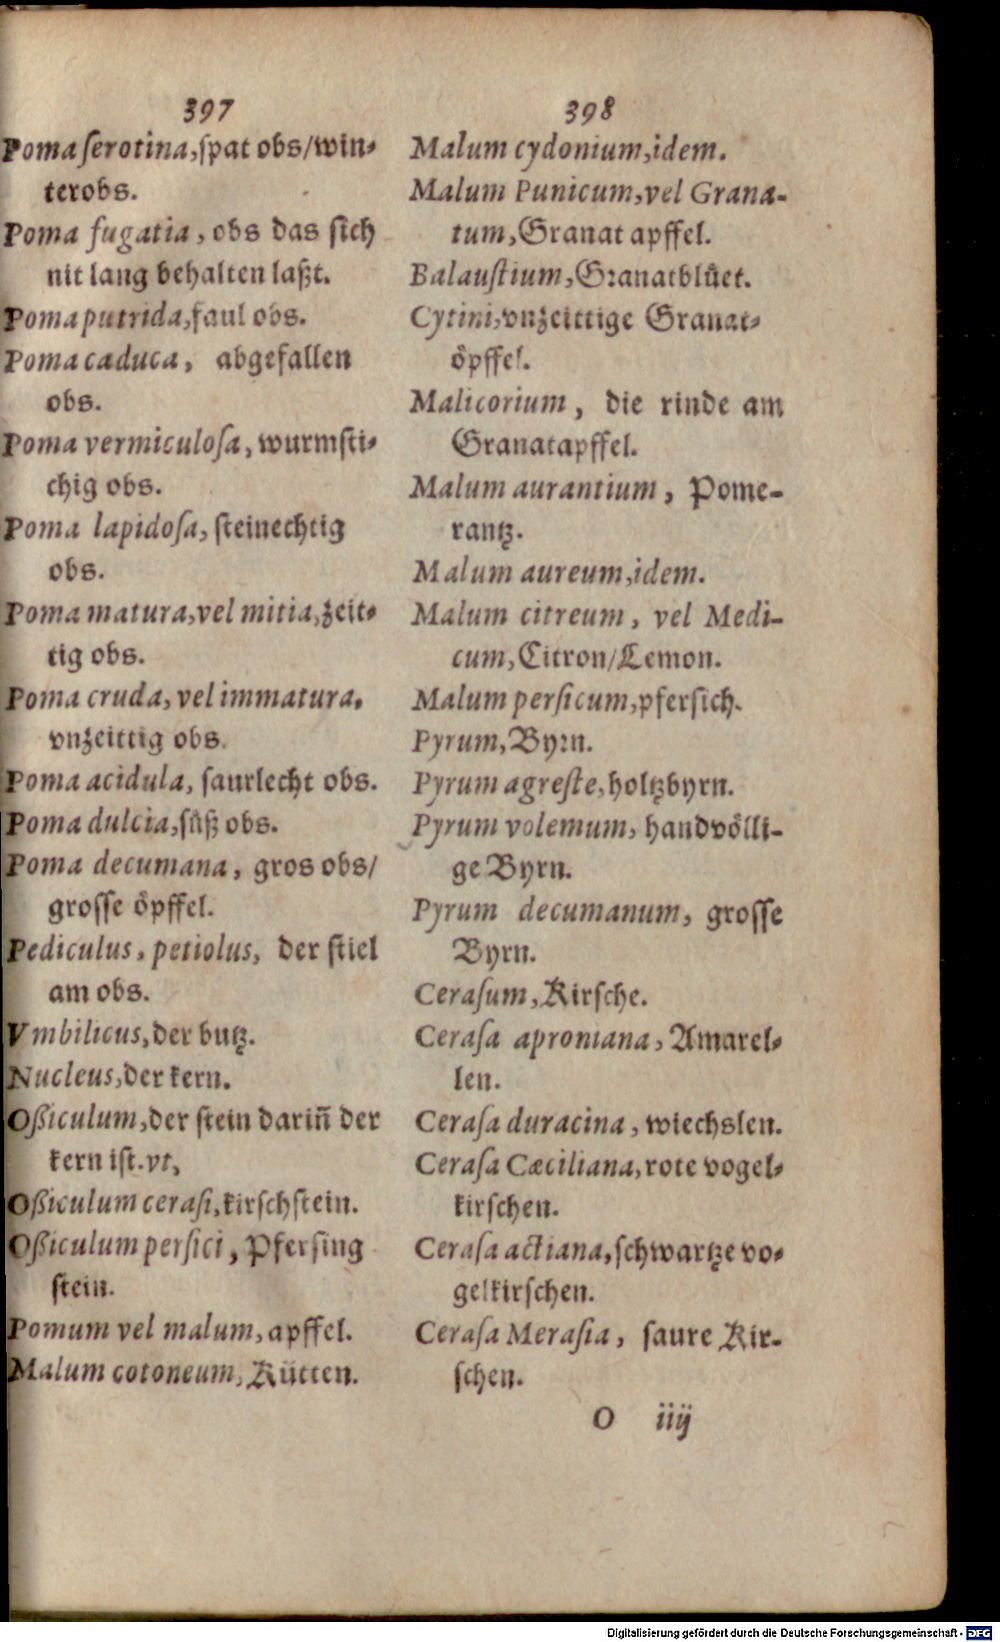 397
Poma serotina, spat obs/win⸗
terobs.
Poma fugatia, obs das sich
nit lang behalten laßt.
Poma putrida, faul obs.
Poma caduca, abgefallen
obs.
Poma vermiculoſa, wurmſti⸗
chig obs.
Poma lapidoſa, ſteinechtig
obs.
Poma matura, vel mitia, zeit⸗
tig obs.
Poma cruda, vel immatura,
vnzeittig obs.
Poma acidula, ſaurlecht obs.
Poma dulcia, ſůß obs.
Poma decumana, gros obs/
groſſe öpffel.
Pediculus, petiolus, der ſtiel
am obs.
Vmbilicus, der butz.
Nucleus, der kern.
Oßiculum, der ſtein dariñ der
kern iſt. vt,
Oßiculum ceraſi, kirſchſtein.
Oßiculum perſici, Pferſing
ſtein.
Pomum vel malum, apffel.
Malum cotoneum, Kütten.
398
Malum cydonium, idem.
Malum Punicum, vel Grana-
tum, Granat apffel.
Balauſtium, Granatblůet.
Cytini, vnzeittige Granat⸗
öpffel.
Malicorium, die rinde am
Granatapffel.
Malum aurantium, Pome-
rantz.
Malum aureum, idem.
Malum citreum, vel Medi-
cum, Citron/Lemon.
Malum perſicum, pferſich.
Pyrum, Byrn.
Pyrum agreſte, holtzbyrn.
Pyrum volemum, handvölli-
ge Byrn.
Pyrum decumanum, groſſe
Byrn.
Ceraſum, Kirſche.
Ceraſa aproniana, Amarel⸗
len.
Ceraſa duracina, wiechslen.
Ceraſa Cæciliana, rote vogel⸗
kirſchen.
Ceraſa actiana, ſchwartze vo⸗
gelkirſchen.
Ceraſa Meraſia, ſaure Kir-
ſchen.
O iiij
Digitalisierung gefördert durch die Deutsche Forschungsgemeinschaft - DFG